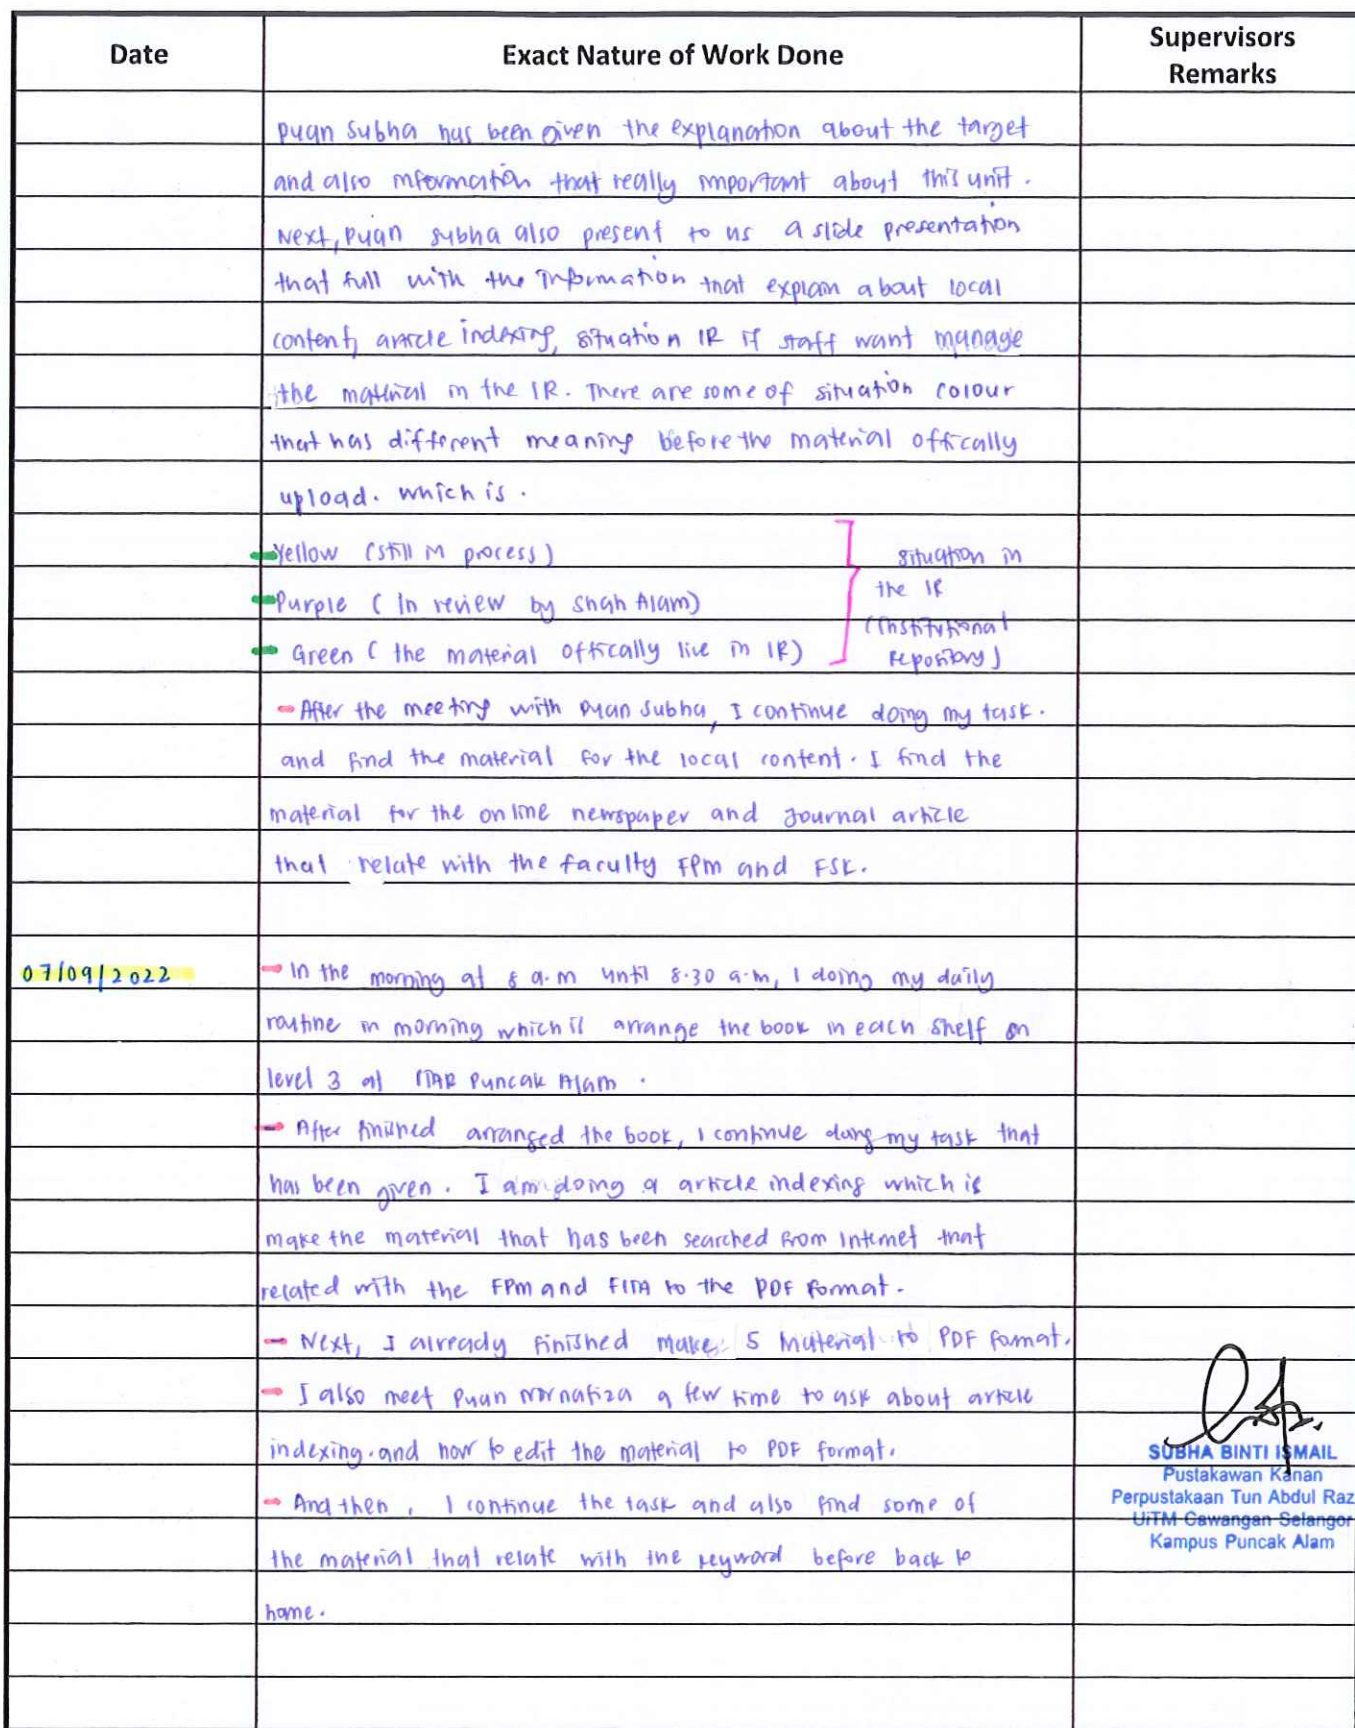 Date
Exact Nature of Work Done
Supervisors
Remarks
puan subha has been given the explanation about the target
and also information that really important about this unit.
Next, puan subha also present to us a slide presentation
that full with the information that explain about local
content, article indexing, situation IR if staff want manage
the material in the IR. There are some of situation colour
that has different meaning before the material offically
upload. which is.
- Yellow (still in process)
- Purple (In review by Shah Alam)
- Green (the material offically live in IR)
situation in
the IR
(Institutional
repository)
- After the meeting with puan subha, I continue doing my task.
and find the material for the local content. I find the
material for the online newspaper and journal article
that relate with the faculty FPM and FSK.
07/09/2022
- In the morning at 8 a.m until 8.30 a.m, I doing my daily
routine in morning which is arrange the book in each shelf on
level 3 at PTAR Puncak Alam.
- After finished arranged the book, I continue doing my task that
has been given. I am doing a article indexing which is
make the material that has been searched from internet that
related with the FPM and FITA to the PDF format.
- Next, I already finished make 5 material to PDF format.
- I also meet Puan Nornafiza a few time to ask about article
indexing. and how to edit the material to PDF format.
- And then, I continue the task and also find some of
the material that relate with the keyword before back to
home.
SUBHA BINTI ISMAIL
Pustakawan Kanan
Perpustakaan Tun Abdul Raz
UiTM Cawangan Selangor
Kampus Puncak Alam